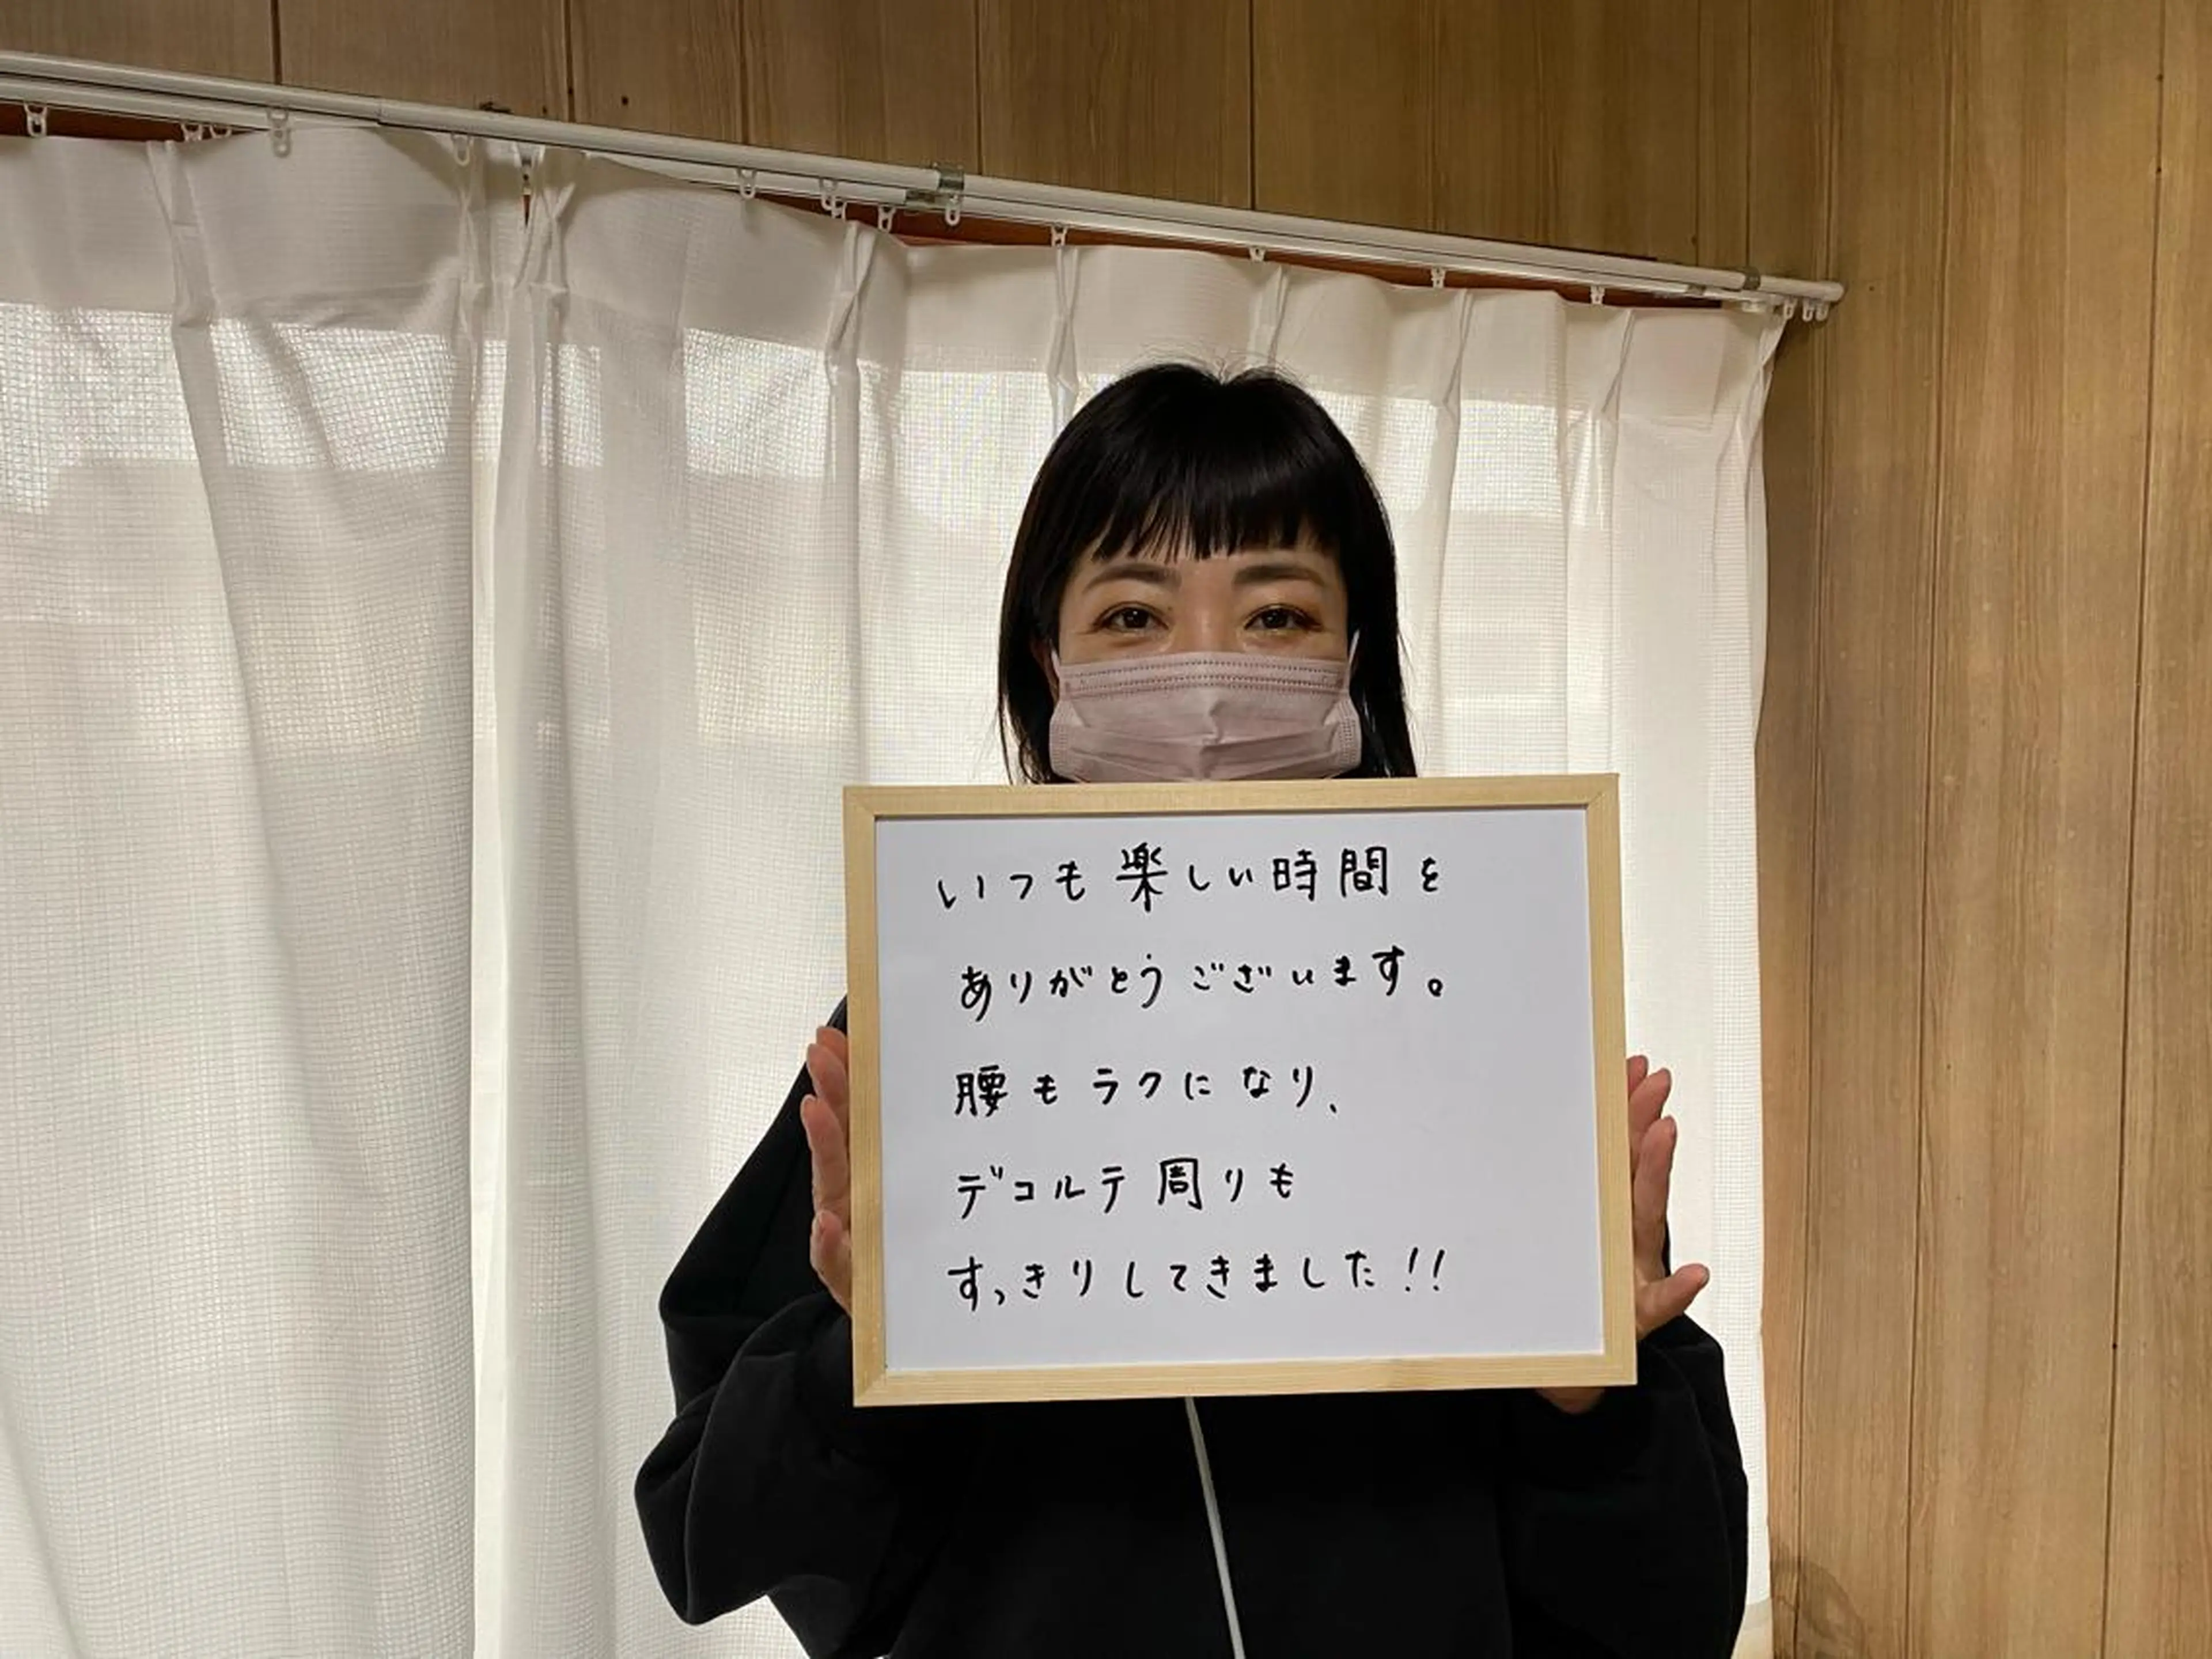 いつも楽しい時間を
ありがとうございます。
腰もラクになり、
デコルテ周りも
すっきりしてきました!!